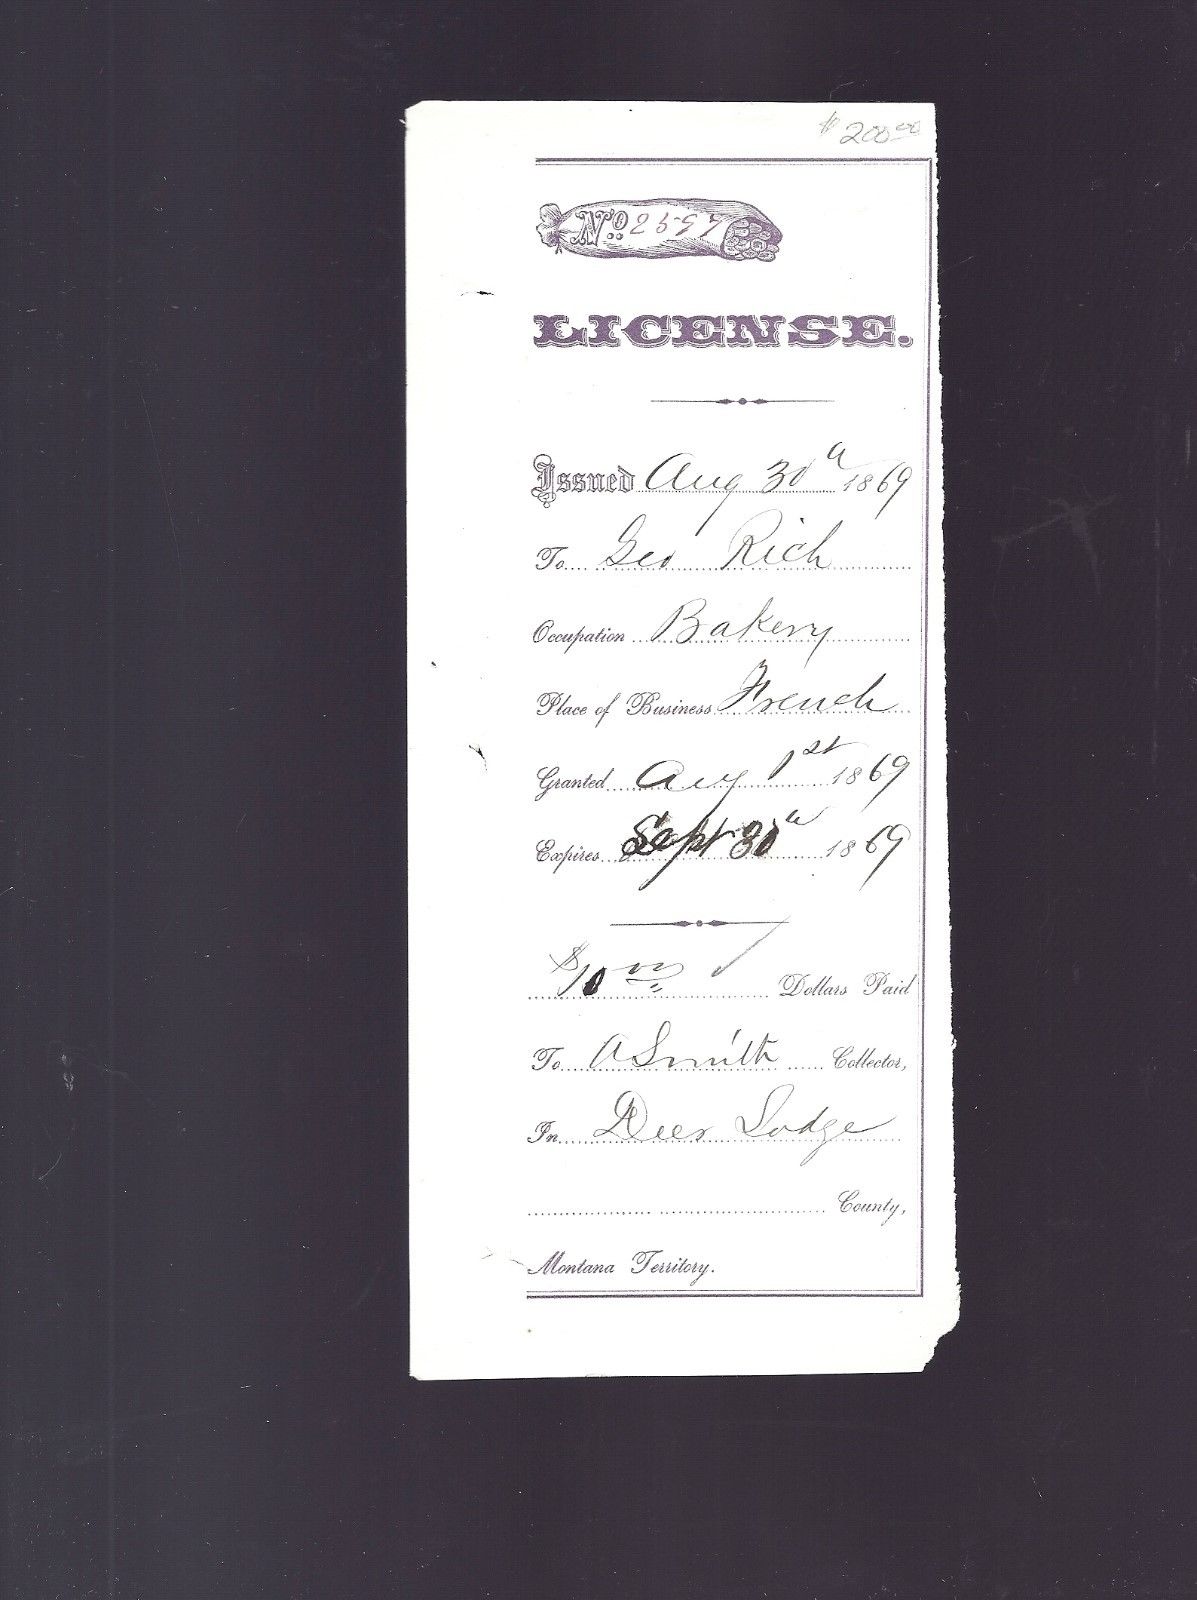 $200.00
No. 2597
LICENSE.
Issued Aug 30th 1869
To Geo Rich
Occupation Bakery
Place of Business French
Granted Aug 1st 1869
Expires Sept 30th 1869
$10.00 Dollars Paid
To A Smith Collector,
In Deer Lodge
County,
Montana Territory.